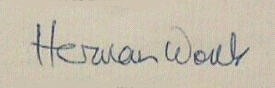 Herman Wouk